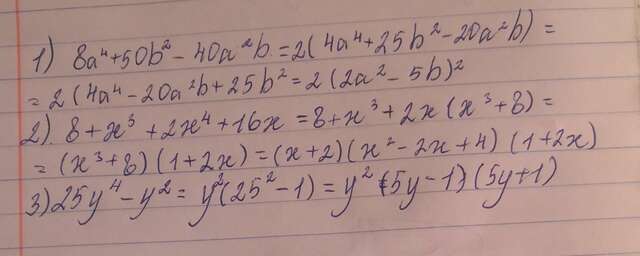 1) 8a⁴+50b²-40a²b=2(4a⁴+25b²-20a²b)=
=2(4a⁴-20a²b+25b²=2(2a²-5b)²
2) 8+x³+2x⁴+16x=8+x³+2x(x³+8)=
=(x³+8)(1+2x)=(x+2)(x²-2x+4)(1+2x)
3) 25y⁴-y²=y²(25²-1)=y²(5y-1)(5y+1)